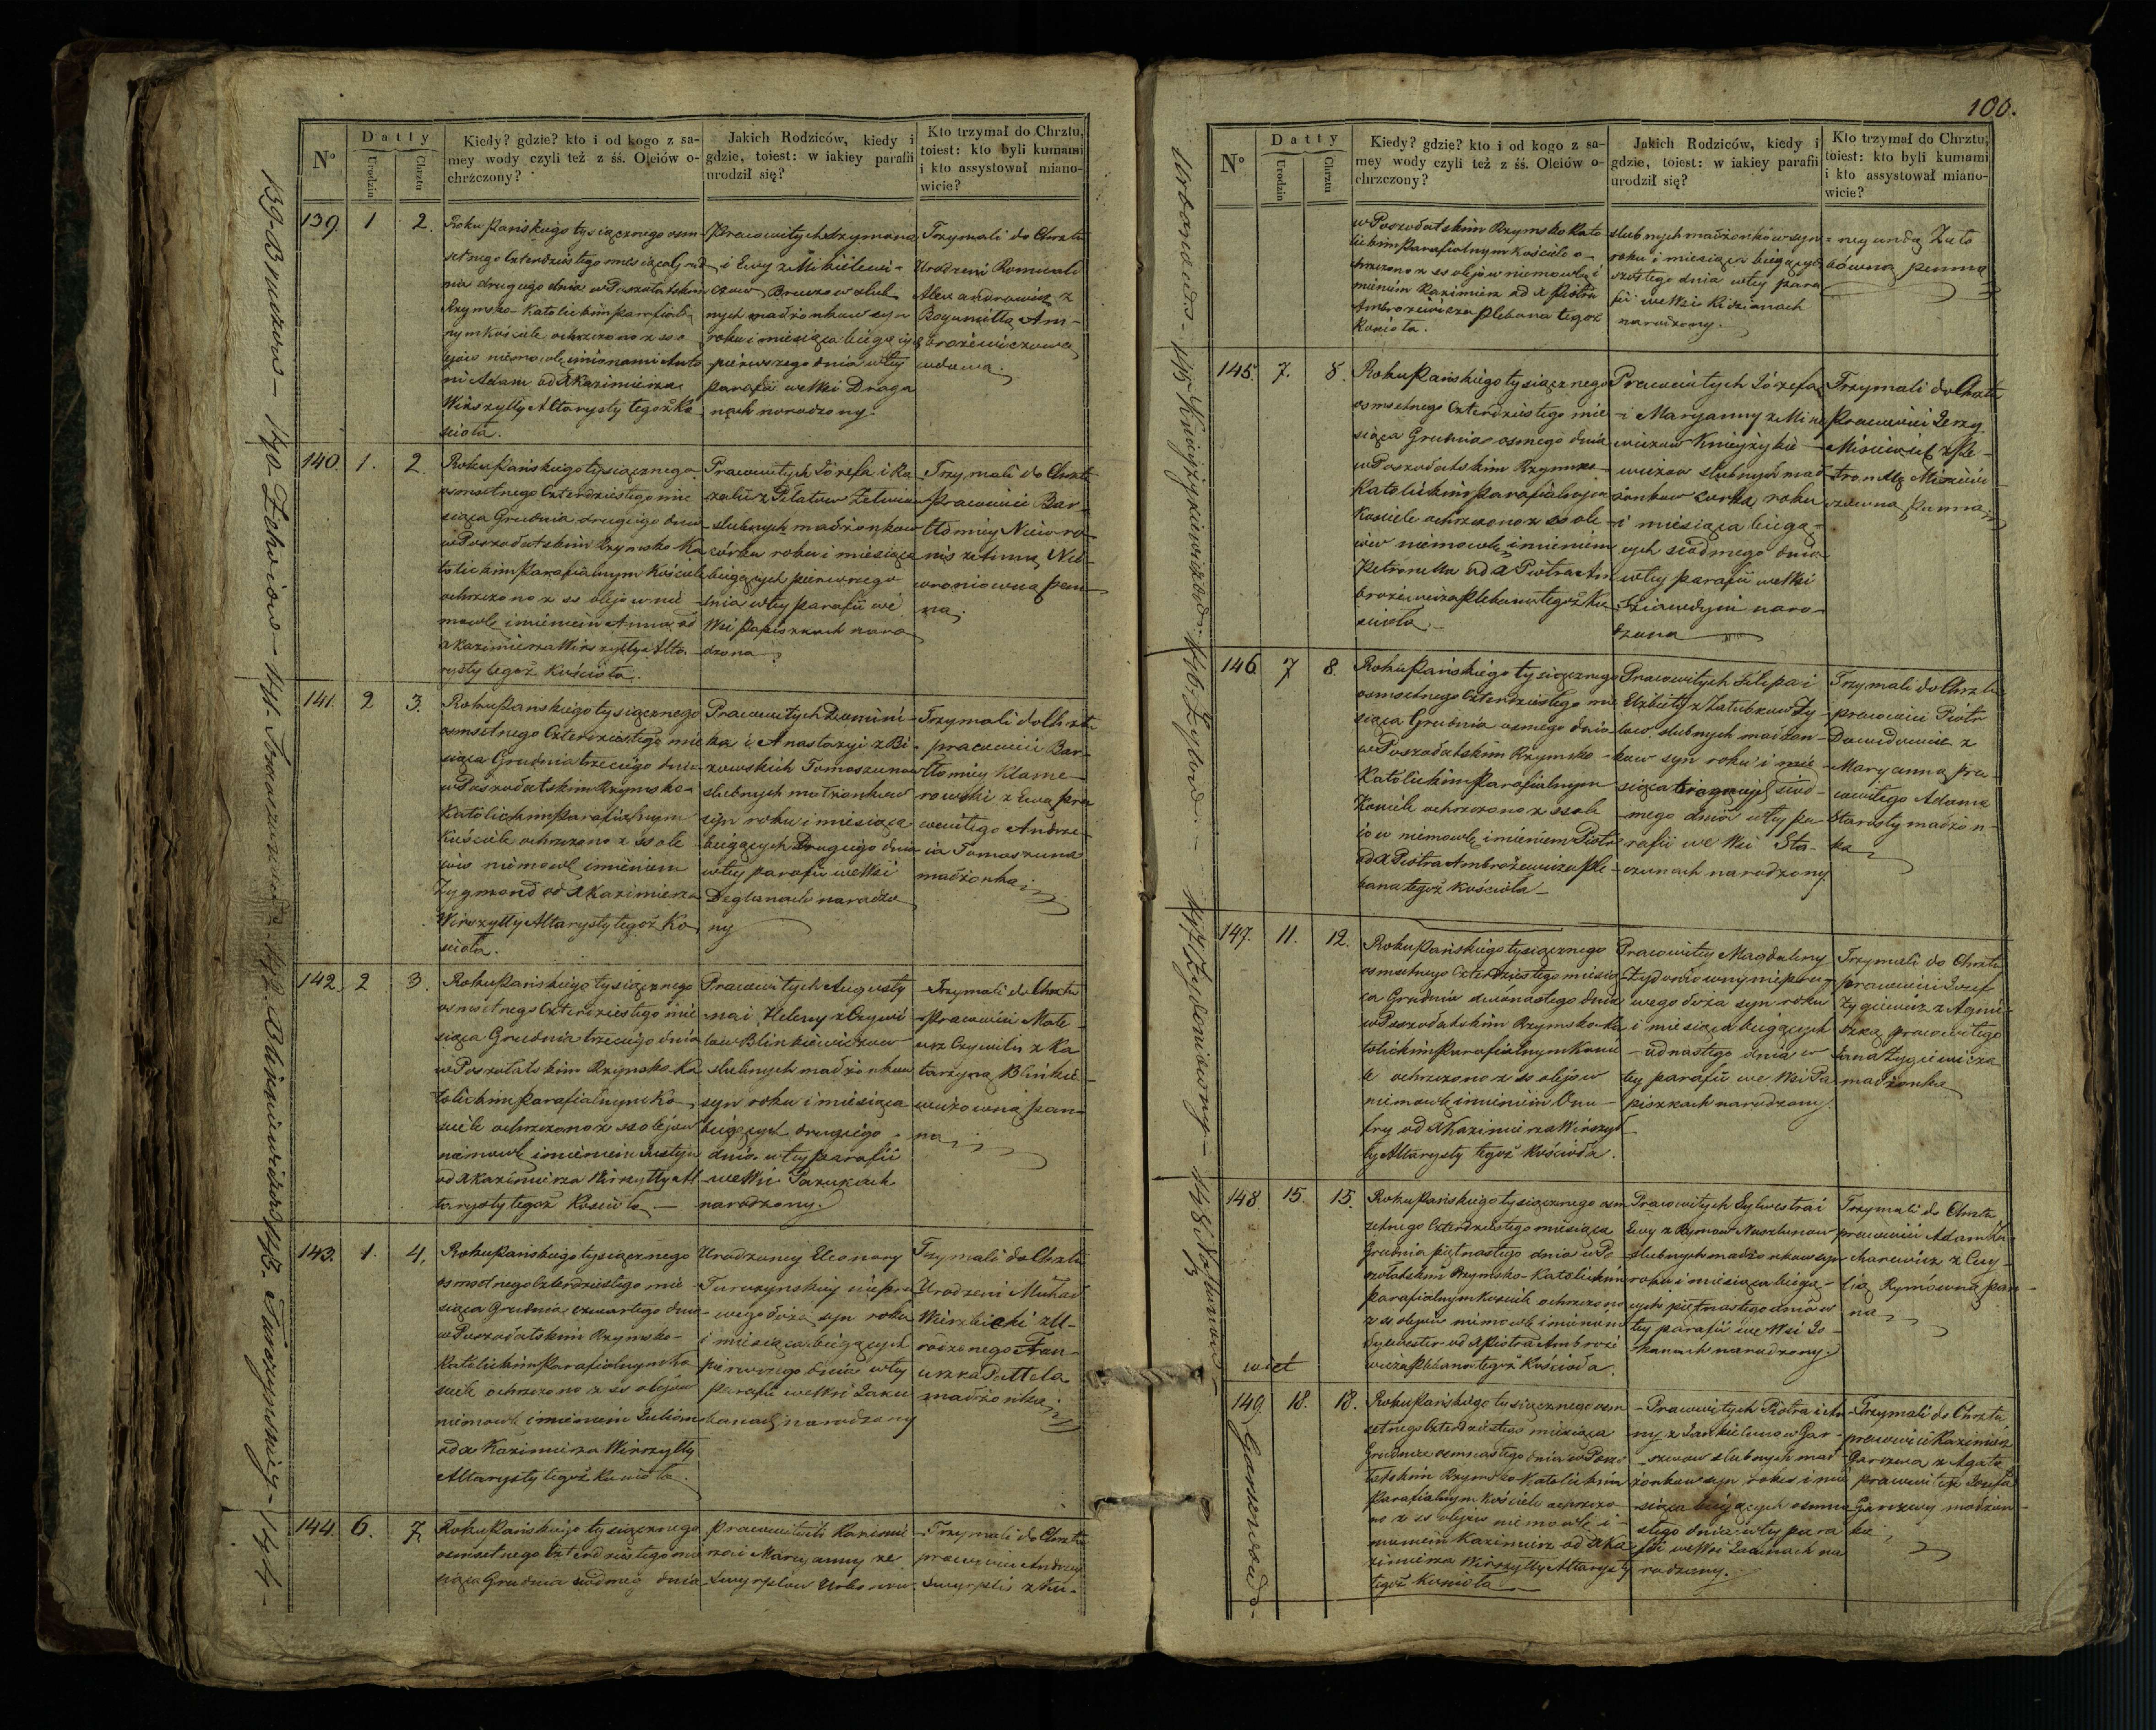 N°
Datty
Urodzin
Chrztu
Kiedy? gdzie? kto i od kogo z sa-
mey wody czyli też z śś. Oleiów o-
chrzczony?
Jakich Rodziców, kiedy i
gdzie, toiest: w iakiey parafii
urodził się?
Kto trzymał do Chrztu,
toiest: kto byli kumami
i kto assystował miano-
wicie?
139. 1 2.
Roku Pańskiego tysiącznego osm-
setnego Czterdziestego miesiąca Grud-
nia drugiego dnia w Poszołatskim
Rzymsko-Katolickim parafial-
nym Kościele ochrzczono z ss o
lejów niemowle imionami Anto
ni Adam od X Kazimierza
Wirszyłły Altarysty tegoż Ko
ścioła.
Pracowitych Szymona
i Ewy z Mikielewi-
czow slub
nych małżonkow syn
roku i miesiąca bieżących
pierwszego dnia w tey
parafii we Wsi Draga
nach narodzony.
Trzymali do Chrztu
Urodzeni Romuald
Alexandrowicz z
Bogumiłłą Am-
brożewiczową
wdową.
140. 1. 2.
Roku Pańskiego tysiącznego
osmsetnego Czterdziestego mie
siąca Grudnia drugiego dnia
w Poszołatskim Rzymsko Ka
tolickim Parafialnym Kościele
ochrzczono z ss olejow nie
mowle imieniem Anna od
X Kazimierza Wirszyłły Alta
rysty tegoż Kościoła.
Pracowitych Józefa i Ro
zalii z Piłatow
slubnych małżonkow
córka roku i miesiąca
bieżących pierwszego
dnia w tey parafii we
Wsi Papiszkach naro
dzona
Trzymali do Chrztu
Pracowici Bar-
tłomiey
z Anną
pan
na.
141. 2 3.
Roku Pańskiego tysiącznego
osmsetnego Czterdziestego mie
siąca Grudnia trzeciego dnia
w Poszołatskim Rzymsko-
Katolickim Parafialnym
Kościele ochrzczono z ss ole
iow niemowle imieniem
Zygmond od X Kazimierza
Wirszyłły Altarysty tegoż Ko
ścioła.
Pracowitych Domini-
ka i Anastazyi z Bi-
zowskich Tomaszunow
slubnych małżonkow
syn roku i miesiąca
bieżących Drugiego dnia
w tey parafii we Wsi
Deglanach narodzo
ny
Trzymali do Chrztu
pracowici Bar-
tłomiey Klame-
rowski z Ewą pra
cowitego Andrze-
ia Tomaszuna
małżonką
142. 2 3.
Roku Pańskiego tysiącznego
osmsetnego Czterdziestego mie
siąca Grudnia trzeciego dnia
w Poszołatskim Rzymsko-Ka
tolickim Parafialnym Ko
ściele ochrzczono z ss olejow
niemowle imieniem Justyn
od X Kazimierza Wirszyłły Al
tarysty tegoż Kościoła.
Pracowitych Augusty
na i Heleny z Czywi
low Blinkiewiczow
slubnych małżonkow
syn roku i miesiąca
bieżących drugiego
dnia w tey parafii
we Wsi Parukach
narodzony.
Trzymali do Chrztu
Pracowici Mate-
usz Czywilis z Ka
tarzyną Blinkie
wiczowną pan
ną
143. 1. 4.
Roku Pańskiego tysiącznego
osmsetnego Czterdziestego mie
siąca Grudnia czwartego dnia
w Poszołatskim Rzymsko-
Katolickim Parafialnym Ko
ściele ochrzczono z ss olejow
niemowle imieniem Julian
od X Kazimierza Wirszyłły
Altarysty tegoż Kościoła.
Urodzoney Eleonory
Turczynskiey niepra
wego łoża syn roku
i miesiąca bieżących
pierwszego dnia w tey
parafii we Wsi Jaku
banach narodzony
Trzymali do Chrztu
Urodzeni Michał
Wierzbicki z U-
rodzonego Fran-
ciszka
małżonką
144. 6. 7.
Roku Pańskiego tysiącznego
osmsetnego Czterdziestego mie
siąca Grudnia siodmego dnia
pracowitych Kazimie
rza i Maryanny ze
Swyrplow Urbanow
Trzymali do Chrztu
pracowici Andrzey
Swyrplis z Ku-
100.
N°
Datty
Urodzin
Chrztu
Kiedy? gdzie? kto i od kogo z sa-
mey wody czyli też z śś. Oleiów o-
chrzczony?
Jakich Rodziców, kiedy i
gdzie, toiest: w iakiey parafii
urodził się?
Kto trzymał do Chrztu,
toiest: kto byli kumami
i kto assystował miano-
wicie?
w Poszołatskim Rzymsko Kato
lickim Parafialnym Kościele o-
chrzczono z ss olejow niemowle i
mieniem Kazimierz od X Piotra
Ambrożewicza Plebana tegoż
Kościoła.
slubnych małżonków syn
roku i miesiąca bieżących
szostego dnia w tey para
fii we Wsi Kidzianach
narodzony.
negundą Zało
bówną panną
145. 7. 8.
Roku Pańskiego tysiącznego
osmsetnego Czterdziestego mie
siąca Grudnia osmego dnia
w Poszołatskim Rzymsko-
Katolickim Parafialnym
Kościele ochrzczono z ss ole
iow niemowle imieniem
Petronella od X Piotra Am
brożewicza Plebana tegoż Ko
ścioła.
Pracowitych Józefa
i Maryanny z Misie
wiczow Kniżykie-
wiczow slubnych mał
żonkow corka roku
i miesiąca bieżą-
cych siodmego dnia
w tey parafii we Wsi
naro-
dzona
Trzymali do Chrztu
Pracowici Jerzy
Misiewicz z Pe-
tronellą Misiewi
czowną Panną
146. 7 8.
Roku Pańskiego tysiącznego
osmsetnego Czterdziestego mie
siąca Grudnia osmego dnia
w Poszołatskim Rzymsko-
Katolickim Parafialnym
Kościele ochrzczono z ss ole
iow niemowle imieniem Piotr
od X Piotra Ambrożewicza Ple
bana tegoż Kościoła
Pracowitych Filipa i
Elzbiety z Załubkow Zy-
low slubnych małżon-
kow syn roku i mie
siąca bieżących siod-
mego dnia w tey pa
rafii we Wsi Sta-
czunach narodzony.
Trzymali do Chrztu
pracowici Piotr
Dawidowicz z
Maryanną pra-
cowitego Adama
Starosty małżon-
ką
147. 11. 12.
Roku Pańskiego tysiącznego
osmsetnego Czterdziestego miesią
ca Grudnia dwónastego dnia
w Poszołatskim Rzymsko-Ka
tolickim Parafialnym Kości
le ochrzczono z ss olejow
niemowle imieniem Onu-
fry od X Kazimierza Wirszył
ły Altarysty tegoż Kościoła.
Pracowitey Magdaleny
Żydoniowny niepra-
wego łoża syn roku
i miesiąca bieżących
iednastego dnia w
tey parafii we Wsi Pa
piszkach narodzony.
Trzymali do Chrztu
pracowici Jozef
Zygiewicz z Agnie
szką pracowitego
Jana Zygiewicza
małżonką
148. 15. 15.
Roku Pańskiego tysiącznego osm
setnego Czterdziestego miesiąca
Grudnia piętnastego dnia w Po
szołatskim Rzymsko-Katolickim
Parafialnym Kościele ochrzczono
z ss olejow niemowle imieniem
Sylwester od X Piotra Ambroże
wicza Plebana tegoż Kościoła.
Pracowitych Sylwestra i
Ewy z Rymow Nosztunow
slubnych małżonkow syn
roku i miesiąca bieżą-
cych piętnastego dnia w
tey parafii we Wsi Jo-
kanach narodzony.
Trzymali do Chrztu
pracowici Adam Ka
charewicz z Cecy-
lią Rymówną pan-
ną
149. 18. 18.
Roku Pańskiego tysiącznego osm
setnego Czterdziestego miesiąca
Grudnia osmnastego dnia w Poszo
łatskim Rzymsko-Katolickim
Parafialnym Kościele ochrzczo
no z ss olejow niemowle i-
mieniem Kazimierz od X Ka
zimierza Wirszyłły Altarysty
tegoż Kościoła
Pracowitych Piotra i An
ny z Jankielunow Gar-
szwow slubnych mał
żonkow syn roku i mie
siąca bieżących osmna
stego dnia w tey para
fii we Wsi na
rodzony.
Trzymali do Chrztu
pracowici Kazimierz
Garszwa z Agatą
pracowitego Jozefa
Garszwy małżon-
ką